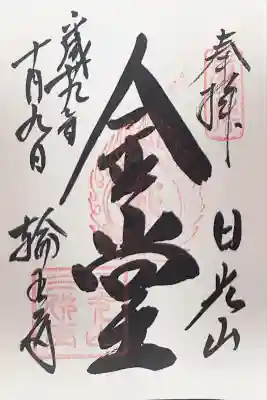 奉拝
日光山
金堂
平成廿九年
十月九日
輪王寺